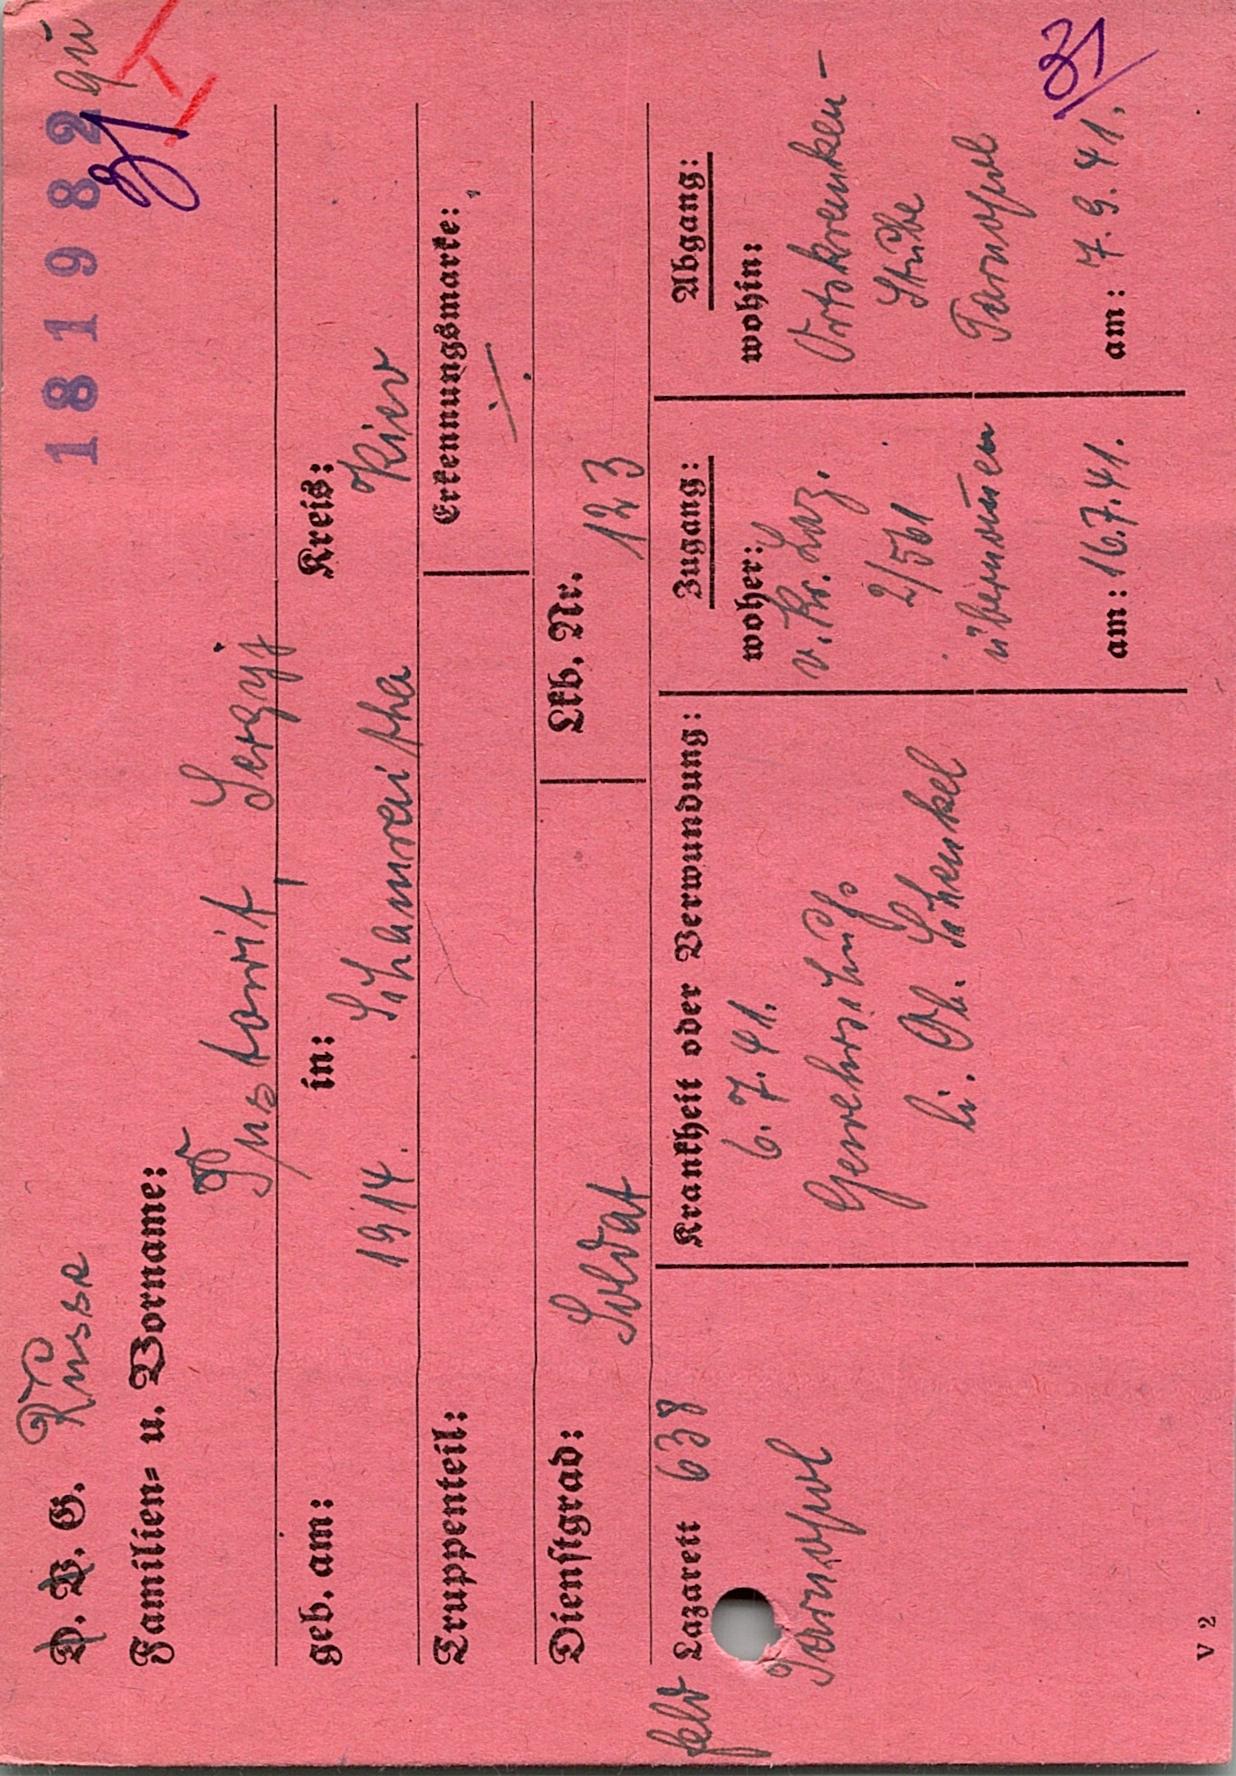 P. B. G. Russe 181982 gü
31
Familien- u. Vorname:
Pustowit, Sergij
geb. am: 1914. in: Schamraitka Kreis: Kiew
Truppenteil: Erkennungsmarke:
Dienstgrad: Soldat Lfd. Nr. 123
Feld Lazarett 638
Tarnopol
Krankheit oder Verwundung:
6.7.41.
Gewehrschuß
li. Ob. Schenkel
Zugang:
woher:
v. Kr. Laz.
2/561
übernomen
am: 16.7.41.
Abgang:
wohin:
Ortskranken-
Stube
Tarnopol
am: 7.9.41.
31
V 2